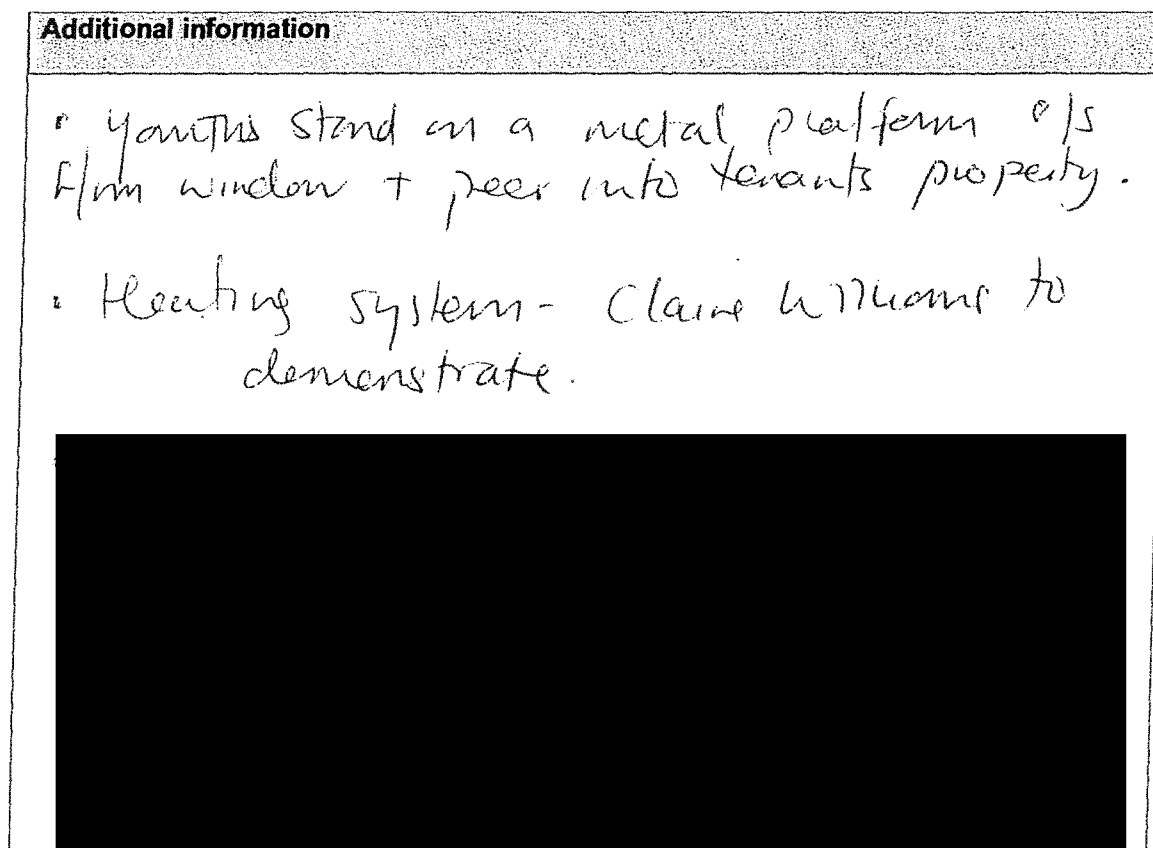 Additional information
• Youths stand on a metal platform o/s
f/rm window + peer into tenants property.
• Heating system - Claire Williams to
demonstrate.